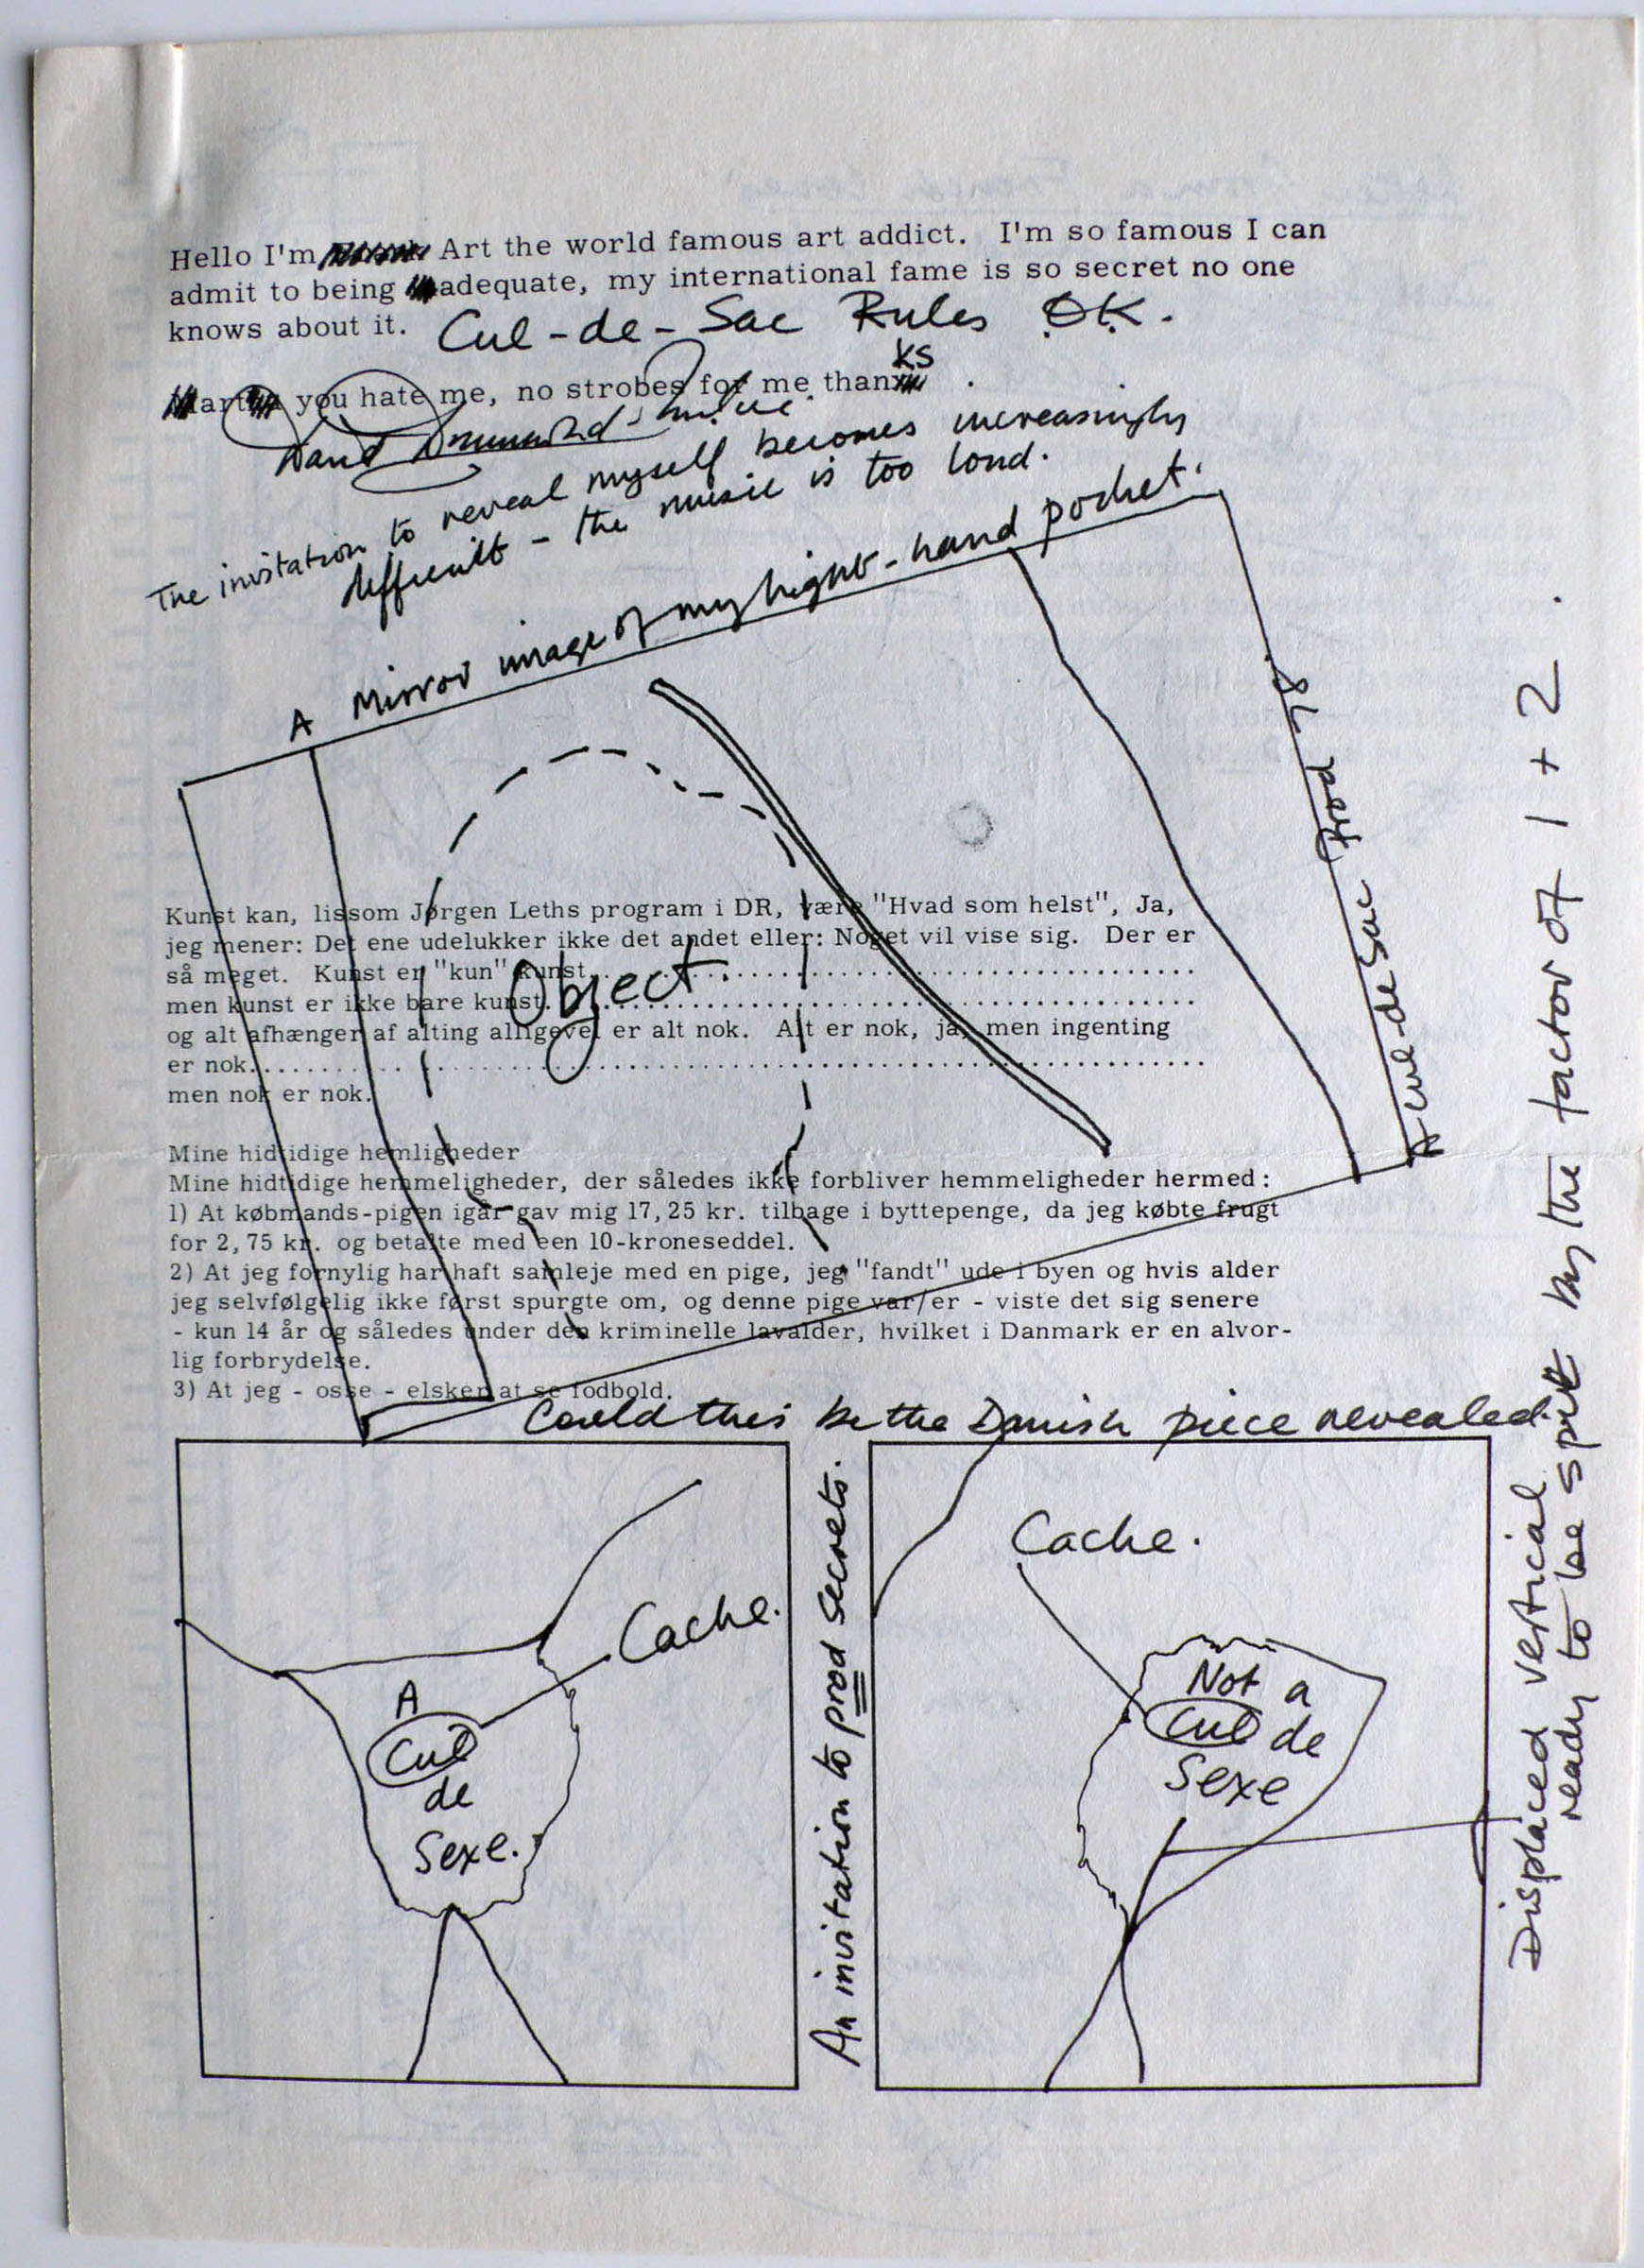 Hello I'm Art the world famous art addict. I'm so famous I can
admit to being adequate, my international fame is so secret no one
knows about it. Cul-de-Sac Rules OK.
you hate me, no strobes for me thanks.
The invitation to reveal myself becomes increasingly
difficult - the music is too loud.
A Mirror image of my right-hand pocket.
A cul-de-Sac Prod 78.
Kunst kan, lissom Jørgen Leths program i DR, være "Hvad som helst", Ja,
jeg mener: Det ene udelukker ikke det andet eller: Noget vil vise sig. Der er
så meget. Kunst er "kun" kunst..............................
men kunst er ikke bare kunst..............................
Object.
og alt afhænger af alting alligevel er alt nok. Alt er nok, ja, men ingenting
er nok..............................
men nok er nok.
Mine hidtidige hemligheder
Mine hidtidige hemmeligheder, der således ikke forbliver hemmeligheder hermed:
1) At købmands-pigen igår gav mig 17,25 kr. tilbage i byttepenge, da jeg købte frugt
for 2,75 kr. og betalte med een 10-kroneseddel.
2) At jeg fornylig har haft samleje med en pige, jeg "fandt" ude i byen og hvis alder
jeg selvfølgelig ikke først spurgte om, og denne pige var/er - viste det sig senere
- kun 14 år og således under den kriminelle lavalder, hvilket i Danmark er en alvor-
lig forbrydelse.
3) At jeg - osse - elsker at se fodbold.
Could this be the Danish piece revealed.
Cache.
A
Cul
de
Sexe.
An invitation to prod secrets.
Cache.
Not a
Cul de
Sexe
Displaced vertical
ready to be split by the factor of 1 + 2.